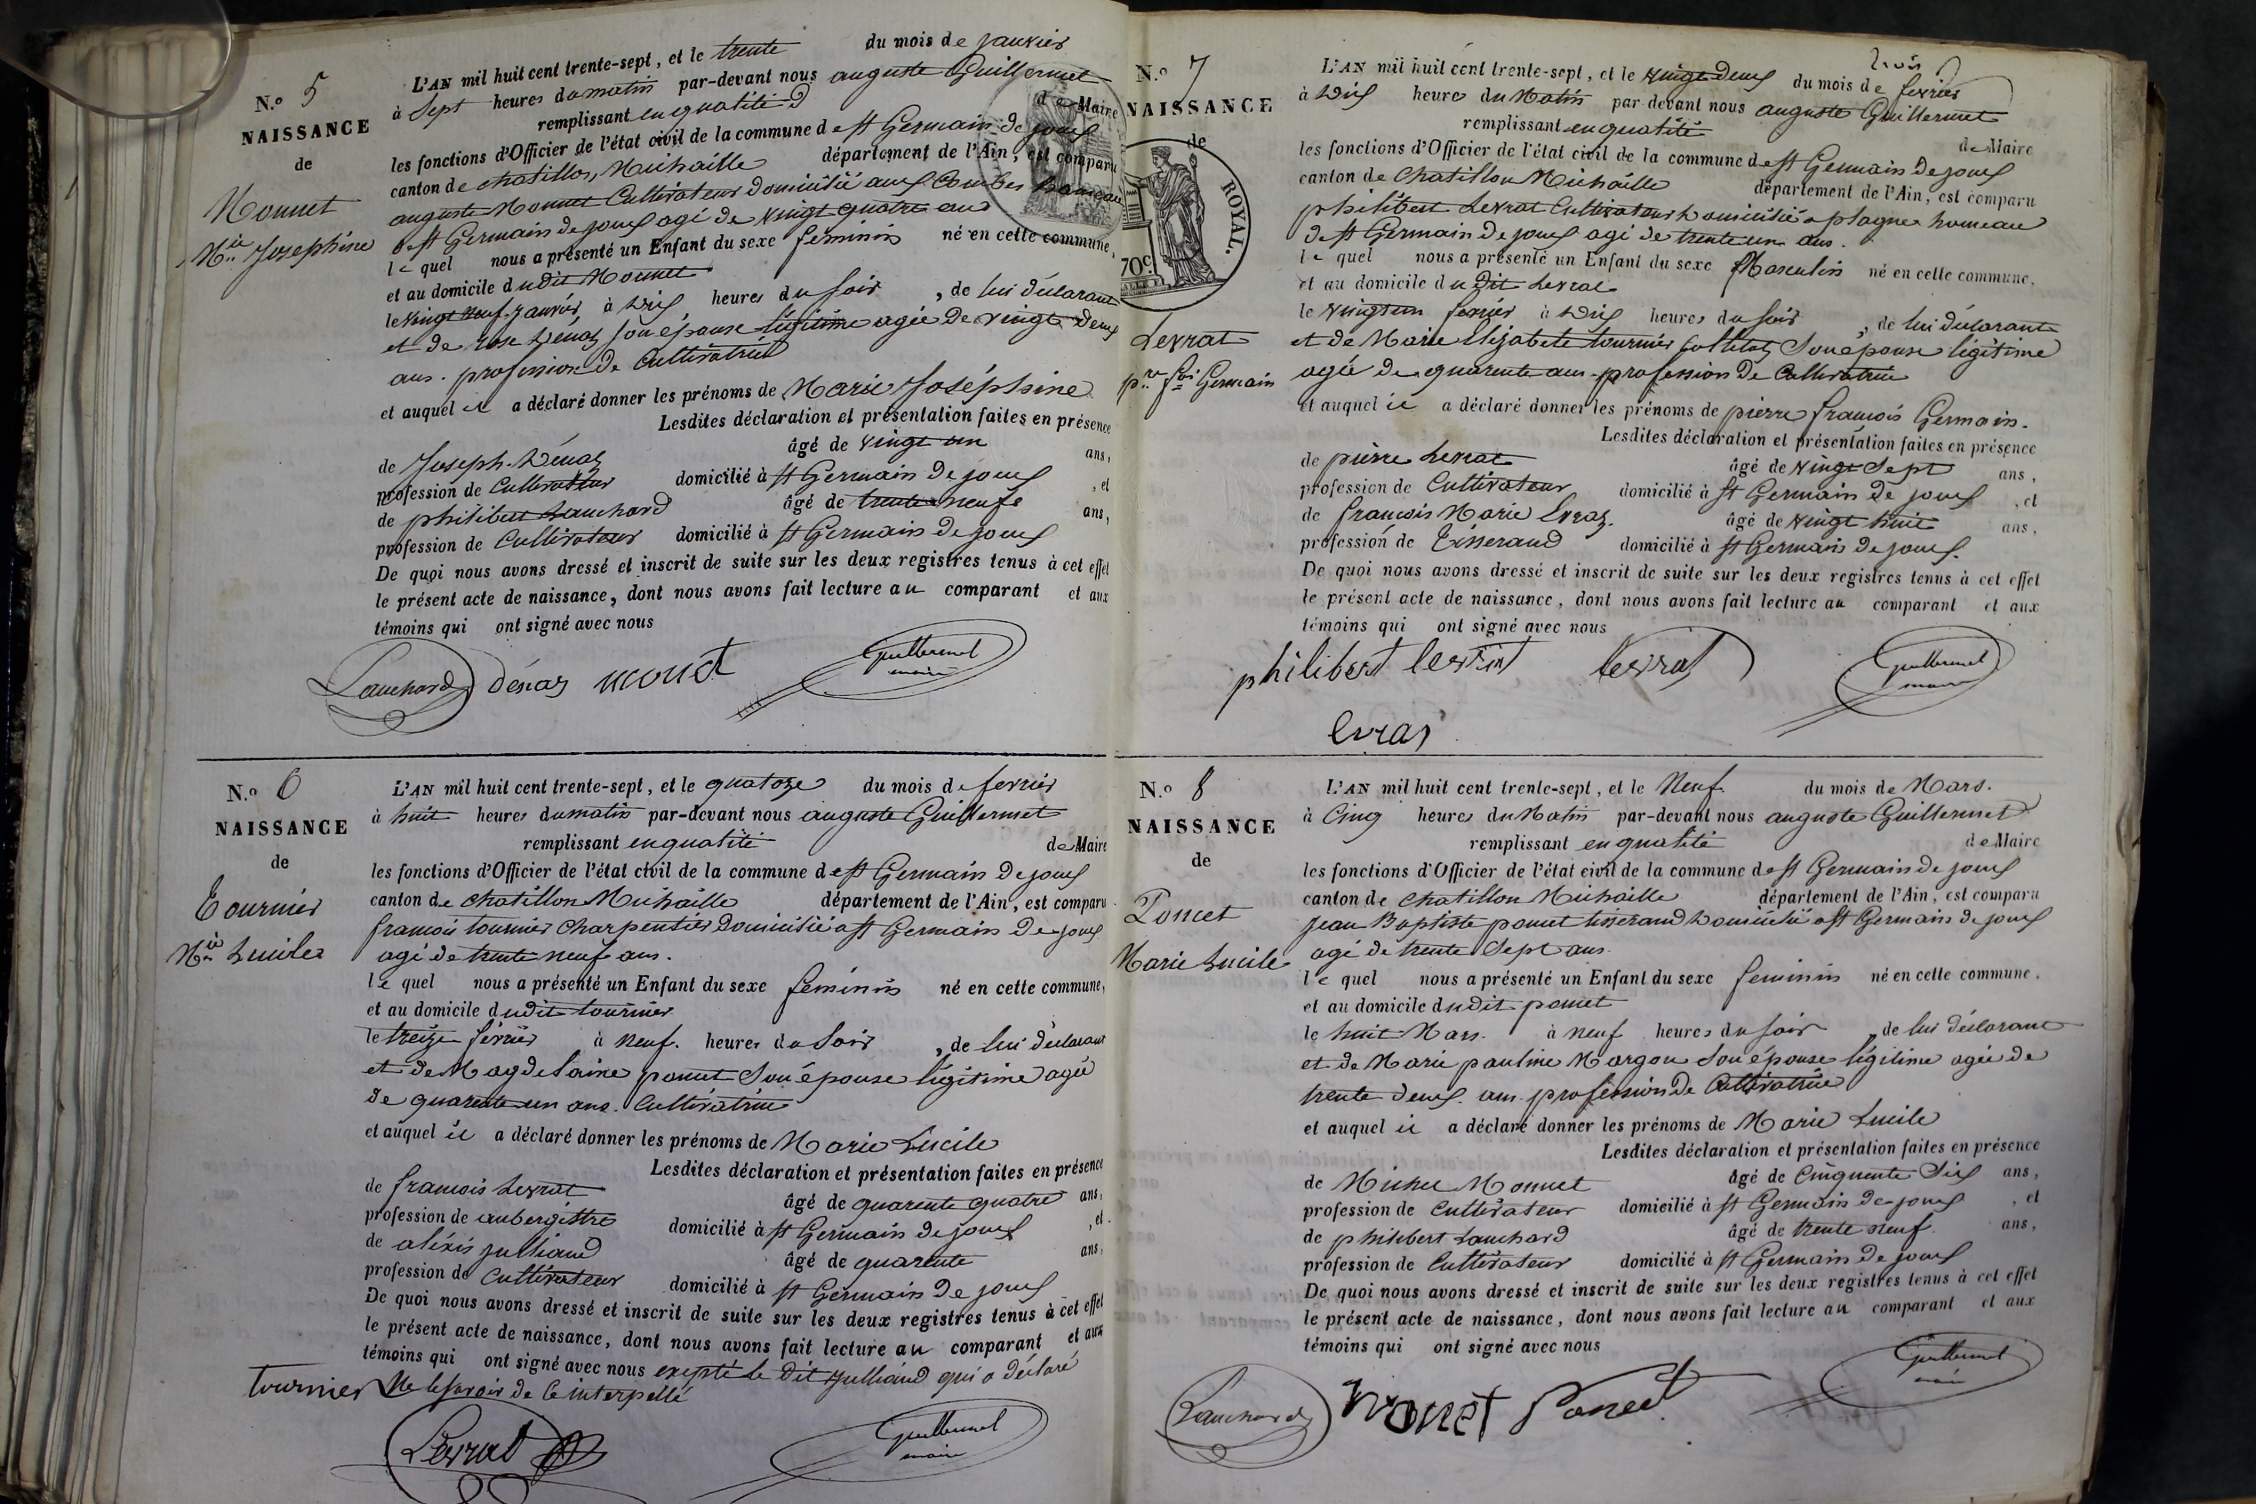 N.º 5
NAISSANCE
de
Monnet
M.ie Joséphine
L'AN mil huit cent trente-sept, et le trente du mois de janvier
à sept heures du matin par-devant nous auguste Guillermet
remplissant en qualité d de Maire
les fonctions d'Officier de l'état civil de la commune de st Germain de joux
canton de chatillon, Michaille département de l'Ain, est comparu
auguste Monnet Cultivateur domicilié aux Combes hameau
de st Germain de joux agé de vingt quatre ans
le quel nous a présenté un Enfant du sexe féminin né en cette commune,
et au domicile dudit Monnet
le vingt neuf janvier, à dix heures du soir, de lui déclarant
et de rose Dénaz son épouse légitime agée de vingt deux
ans. profession de Cultivatrice
et auquel il a déclaré donner les prénoms de Marie Joséphine
Lesdites déclaration et présentation faites en présence
de Joseph Dénaz âgé de vingt un ans,
profession de Cultivateur domicilié à st Germain de joux, et
de philibert Lauchard âgé de trente neufs ans,
profession de Cultivateur domicilié à st Germain de joux
De quoi nous avons dressé et inscrit de suite sur les deux registres tenus à cet effet
le présent acte de naissance, dont nous avons fait lecture au comparant et aux
témoins qui ont signé avec nous
Lauchard dénaz monet Guillermet
maire
N.º 6
NAISSANCE
de
Tournier
M.ie Lucile
L'AN mil huit cent trente-sept, et le quatorze du mois de fevrier
à huit heures du matin par-devant nous auguste Guillermet
remplissant en qualité de Maire
les fonctions d'Officier de l'état civil de la commune de st Germain de joux
canton de chatillon Michaille département de l'Ain, est comparu
francois tournier Charpentier Domicilié a st Germain de joux
agé de trente neuf ans.
le quel nous a présenté un Enfant du sexe féminin né en cette commune,
et au domicile dudit tournier
le treize février à neuf. heures du Soir, de lui déclarant
et de Magdelaine poncet son épouse légitime agée
de quarente un ans. Cultivatrice
et auquel il a déclaré donner les prénoms de Marie Lucile
Lesdites déclaration et présentation faites en présence
de francois Levrat âgé de quarente quatre ans,
profession de aubergiste domicilié à st Germain de joux, et
de aléxis julliand âgé de quarente ans,
profession de Cultivateur domicilié à st Germain de joux
De quoi nous avons dressé et inscrit de suite sur les deux registres tenus à cet effet
le présent acte de naissance, dont nous avons fait lecture au comparant et aux
témoins qui ont signé avec nous excepté le dit julliand qui a déclaré
tournier Ne le savoir de ce interpellé
Levrat Guillermet
maire
N.º 7
NAISSANCE
de
ROYAL.
70c.
Levrat
p.re f.ois Germain
trois
L'AN mil huit cent trente-sept, et le vingt deux du mois de fevrier
à dix heures du Matin par-devant nous auguste Guillermet
remplissant en qualité de Maire
les fonctions d'Officier de l'état civil de la commune de st Germain de joux
canton de Chatillon Michaille département de l'Ain, est comparu
philibert Levrat Cultivateur Domicilié a plagne hameau
de st Germain de joux agé de trente un ans.
le quel nous a présenté un Enfant du sexe Masculin né en cette commune,
et au domicile dudit Levrat
le vingt un fevrier à dix heures du soir, de lui déclarant
et de Marie Elizabete tournier son épouse légitime
agée de quarente ans profession de Cultivatrice
et auquel il a déclaré donner les prénoms de pierre francois Germain.
Lesdites déclaration et présentation faites en présence
de pierre Levrat âgé de vingt Sept ans,
profession de Cultivateur domicilié à st Germain de joux, et
de francois Marie Evraz. âgé de vingt huit ans,
profession de Tisserand domicilié à st Germain de joux.
De quoi nous avons dressé et inscrit de suite sur les deux registres tenus à cet effet
le présent acte de naissance, dont nous avons fait lecture au comparant et aux
témoins qui ont signé avec nous
philibert levrat levrat Guillermet
maire
evraz
N.º 8
NAISSANCE
de
Poncet
Marie Lucile
L'AN mil huit cent trente-sept, et le Neuf. du mois de Mars.
à Cinq heures du Matin par-devant nous auguste Guillermet
remplissant en qualité de Maire
les fonctions d'Officier de l'état civil de la commune de st Germain de joux
canton de Chatillon Michaille département de l'Ain, est comparu
jean Baptiste poncet tisserand Domicilié a st Germain de joux
agé de trente Sept ans.
le quel nous a présenté un Enfant du sexe feminin né en cette commune,
et au domicile dudit poncet
le huit Mars. à neuf heures du soir, de lui déclarant
et de Marie pauline Margou son épouse légitime agée de
trente deux ans profession de Cultivatrice
et auquel il a déclaré donner les prénoms de Marie Lucile
Lesdites déclaration et présentation faites en présence
de Michel Monnet âgé de Cinquente Six ans,
profession de Cultivateur domicilié à st Germain de joux, et
de philibert Lauchard âgé de trente neuf ans,
profession de Cultivateur domicilié à st Germain de joux
De quoi nous avons dressé et inscrit de suite sur les deux registres tenus à cet effet
le présent acte de naissance, dont nous avons fait lecture au comparant et aux
témoins qui ont signé avec nous
Lauchard monet Poncet Guillermet
maire